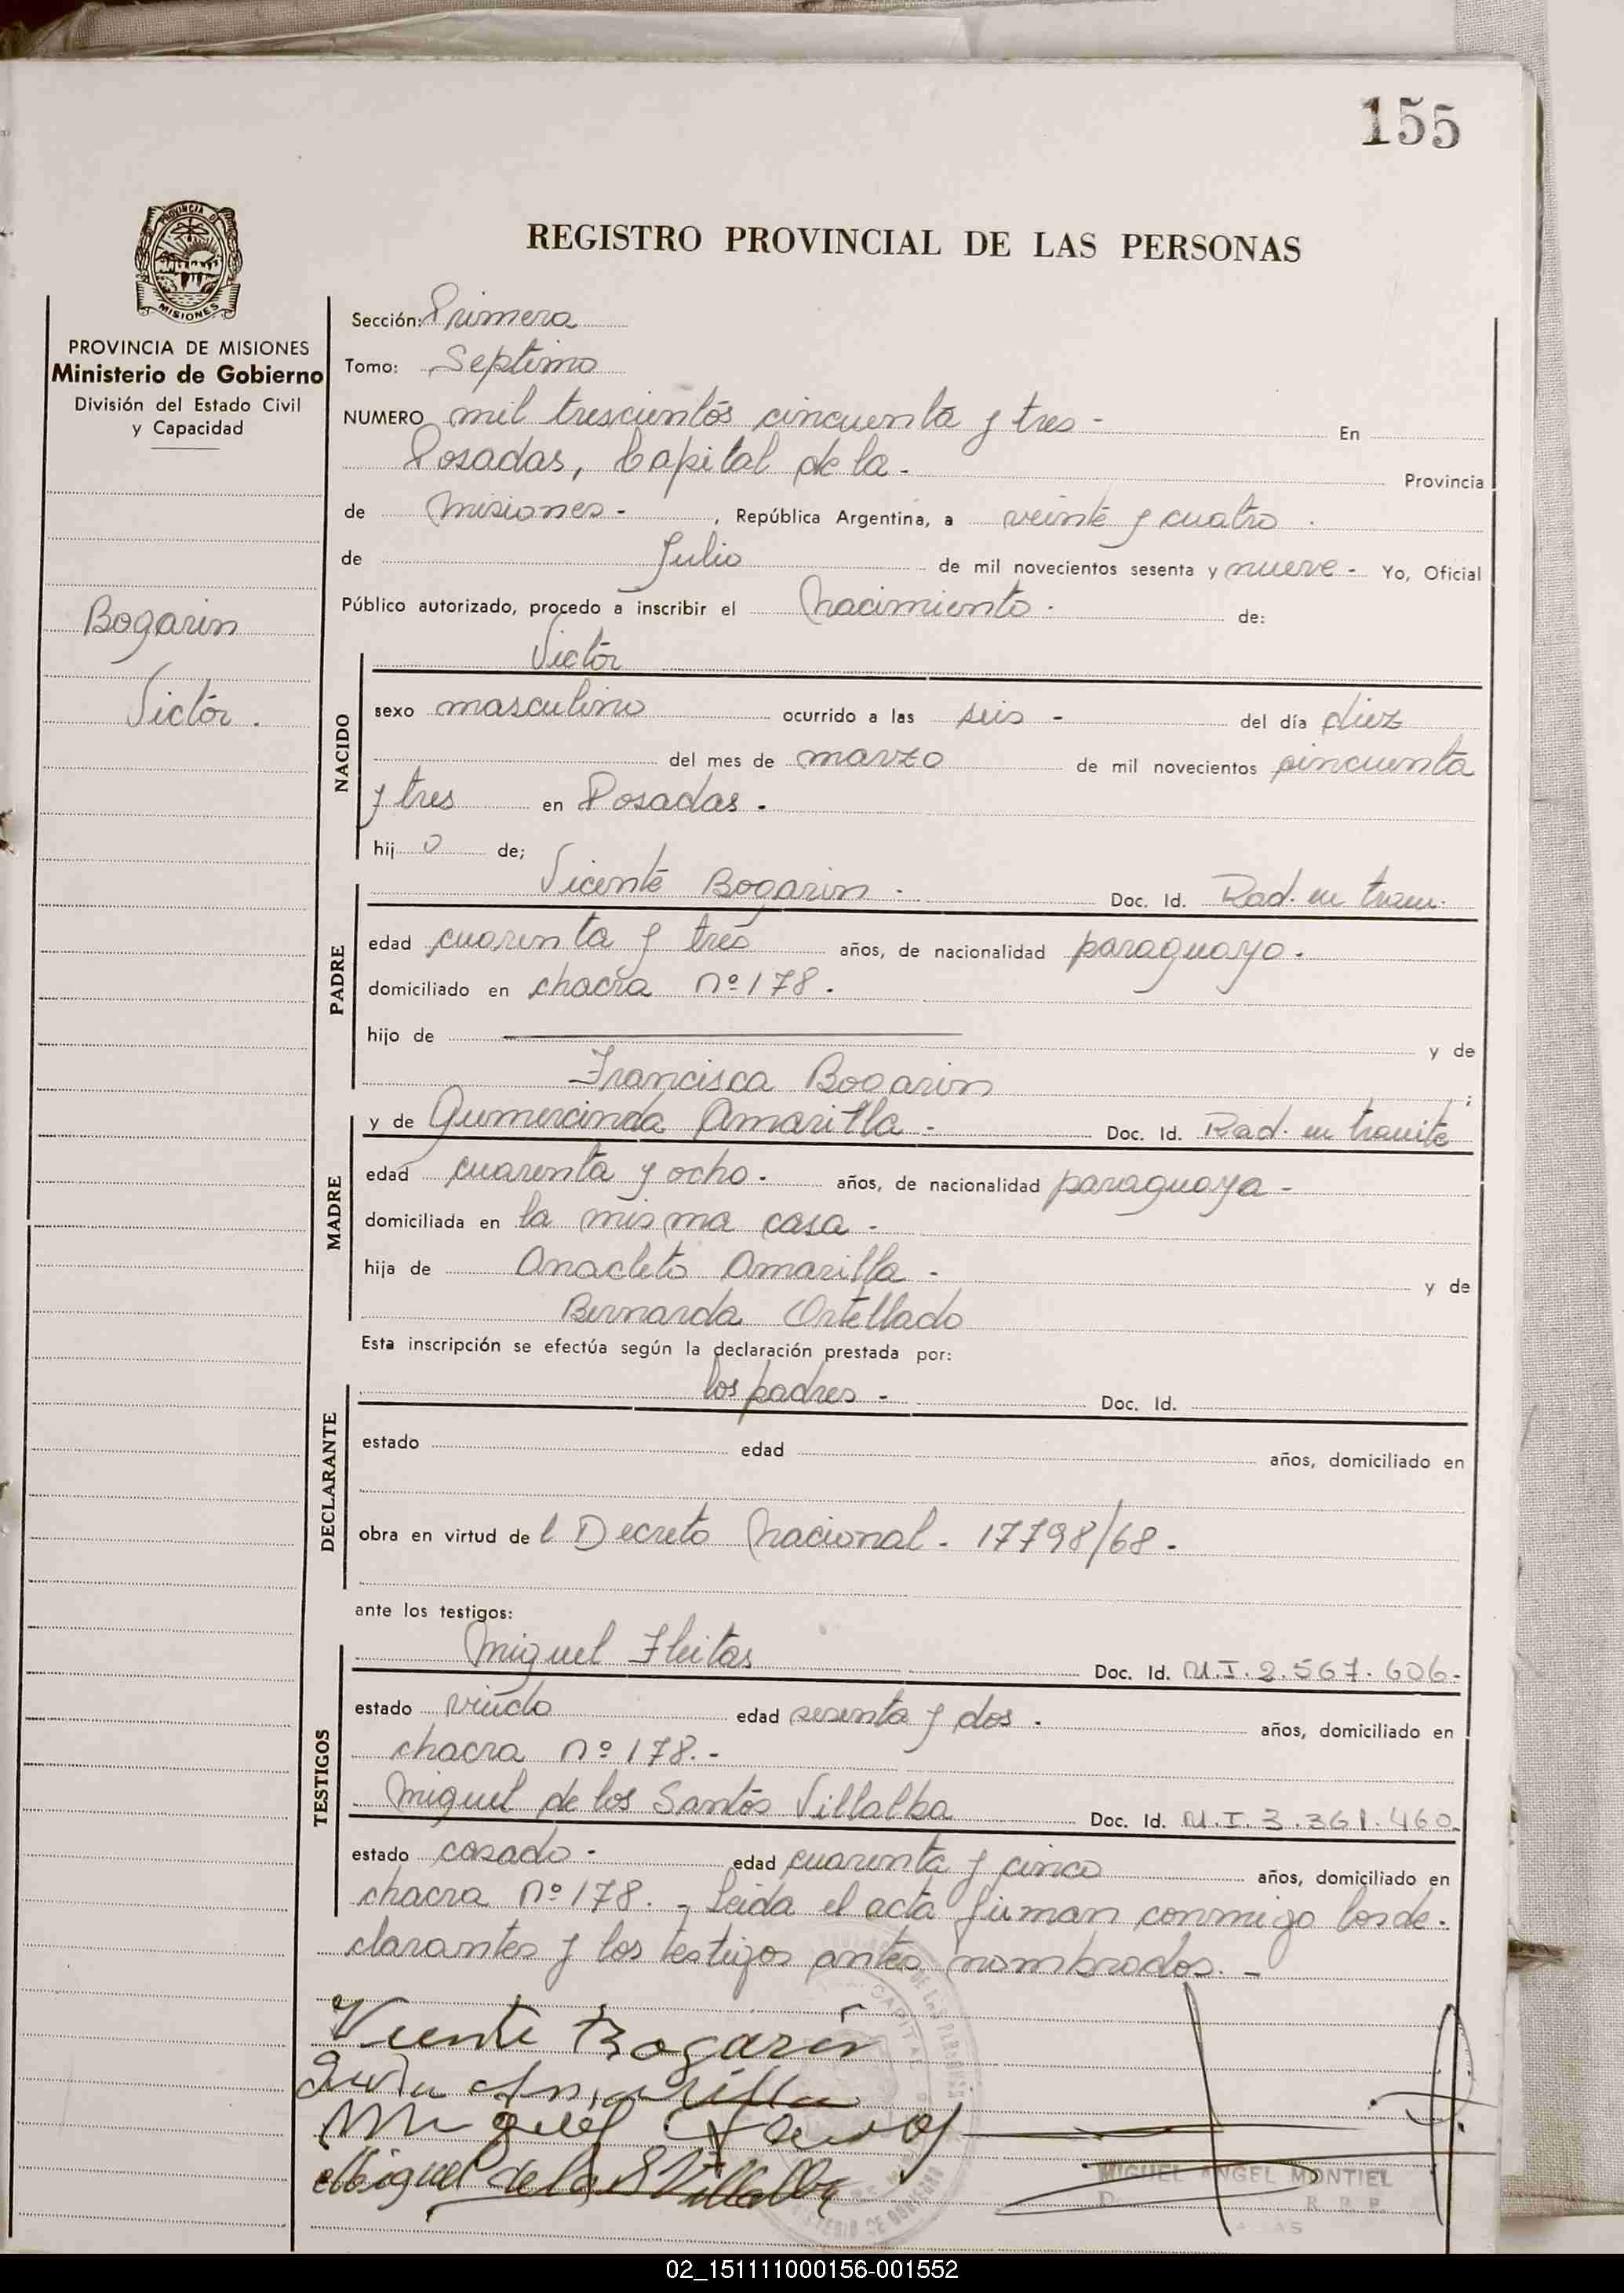 155
PROVINCIA DE
MISIONES
REGISTRO PROVINCIAL DE LAS PERSONAS
PROVINCIA DE MISIONES
Ministerio de Gobierno
División del Estado Civil
y Capacidad
Bogarin
Victor.
Sección: Primera
Tomo: Septimo
NUMERO mil trescientos cincuenta y tres - En
Posadas, Capital de la - Provincia
de Misiones - , República Argentina, a veinte y cuatro .
de Julio de mil novecientos sesenta y nueve - Yo, Oficial
Público autorizado, procedo a inscribir el nacimiento - de:
NACIDO
Victor
sexo masculino ocurrido a las seis - del día diez
del mes de marzo de mil novecientos cincuenta
y tres en Posadas .
hij o de;
PADRE
Vicente Bogarin - Doc. Id. Rad. en tram.
edad cuarenta y tres años, de nacionalidad paraguayo .
domiciliado en chacra nº 178 .
hijo de y de
Francisca Bogarin ;
MADRE
y de Gumercinda Amarilla - Doc. Id. Rad. en tramite
edad cuarenta y ocho . años, de nacionalidad paraguaya -
domiciliada en la misma casa -
hija de Anacleto Amarilla - y de
Bernarda Ortellado
Esta inscripción se efectúa según la declaración prestada por:
DECLARANTE
los padres - Doc. Id.
estado edad años, domiciliado en
obra en virtud de l Decreto Nacional - 17798/68 -
ante los testigos:
TESTIGOS
Miguel Fleitas Doc. Id. M.I. 2.567.606-
estado viudo edad sesenta y dos . años, domiciliado en
chacra nº 178. -
Miguel de los Santos Villalba Doc. Id. M.I. 3.361.460.
estado casado - edad cuarenta y cinco años, domiciliado en
chacra nº 178. - Leida el acta firman conmigo los de-
clarantes y los testigos antes nombrados. -
Vicente Bogarin
Amarilla
Miguel
Miguel de los S Villalba
MIGUEL ANGEL MONTIEL
02_151111000156-001552